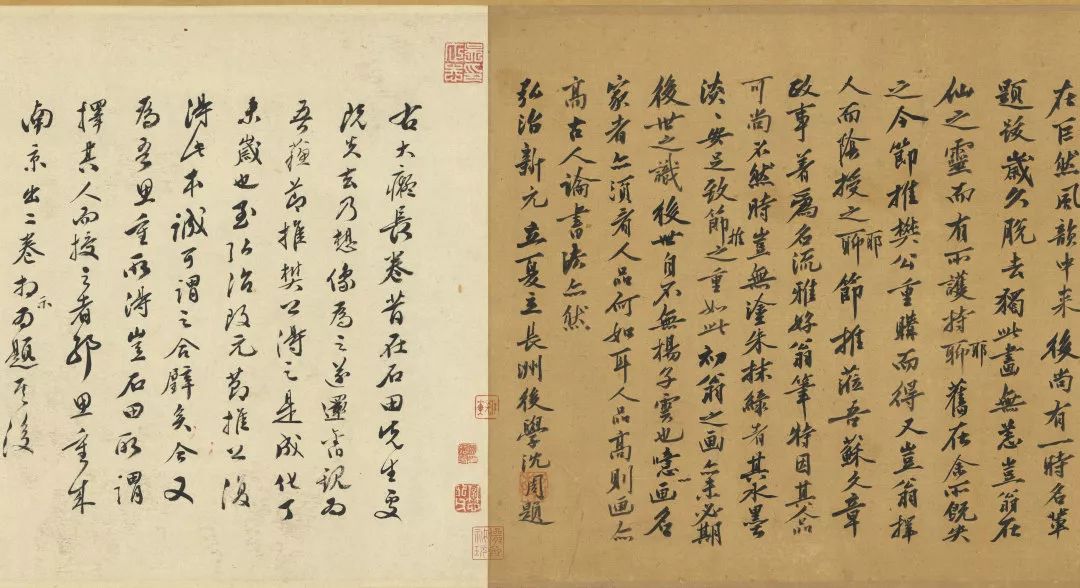 在巨然風韻中来後尚有一時名輩
題跋歲久脫去獨此畫無恙豈翁在
仙之靈而有所護持耶舊在余所既失
之今節推樊公重購而得又豈翁擇
人而陰授之耶節推蒞吾蘇文章
政事著為名流雅好翁筆特因其人品
可尚不然時豈無塗朱抹綠者其水墨
淡、安足致節推之重如此初翁之画亦未必期
後世之識後世自不無揚子雲也噫画名
家者亦須看人品何如耳人品高則画亦
高古人論書法亦然
弘治新元立夏立長洲後學沈周題
右大癡長卷昔在石田先生處
既失去乃想像為之遂還舊觀為
吾蘇節推樊公得之是成化丁
未歲也至弘治改元節推公復
得此本誠可謂之合璧矣今又
為吾思重所得豈石田所謂
擇其人而授之者邪思重來
南京出二卷相示為題其後